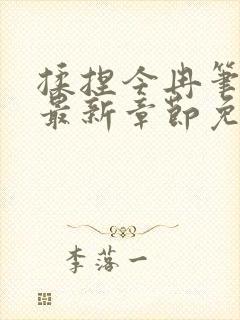 揉捏今冉笔
最新章节免
李落一